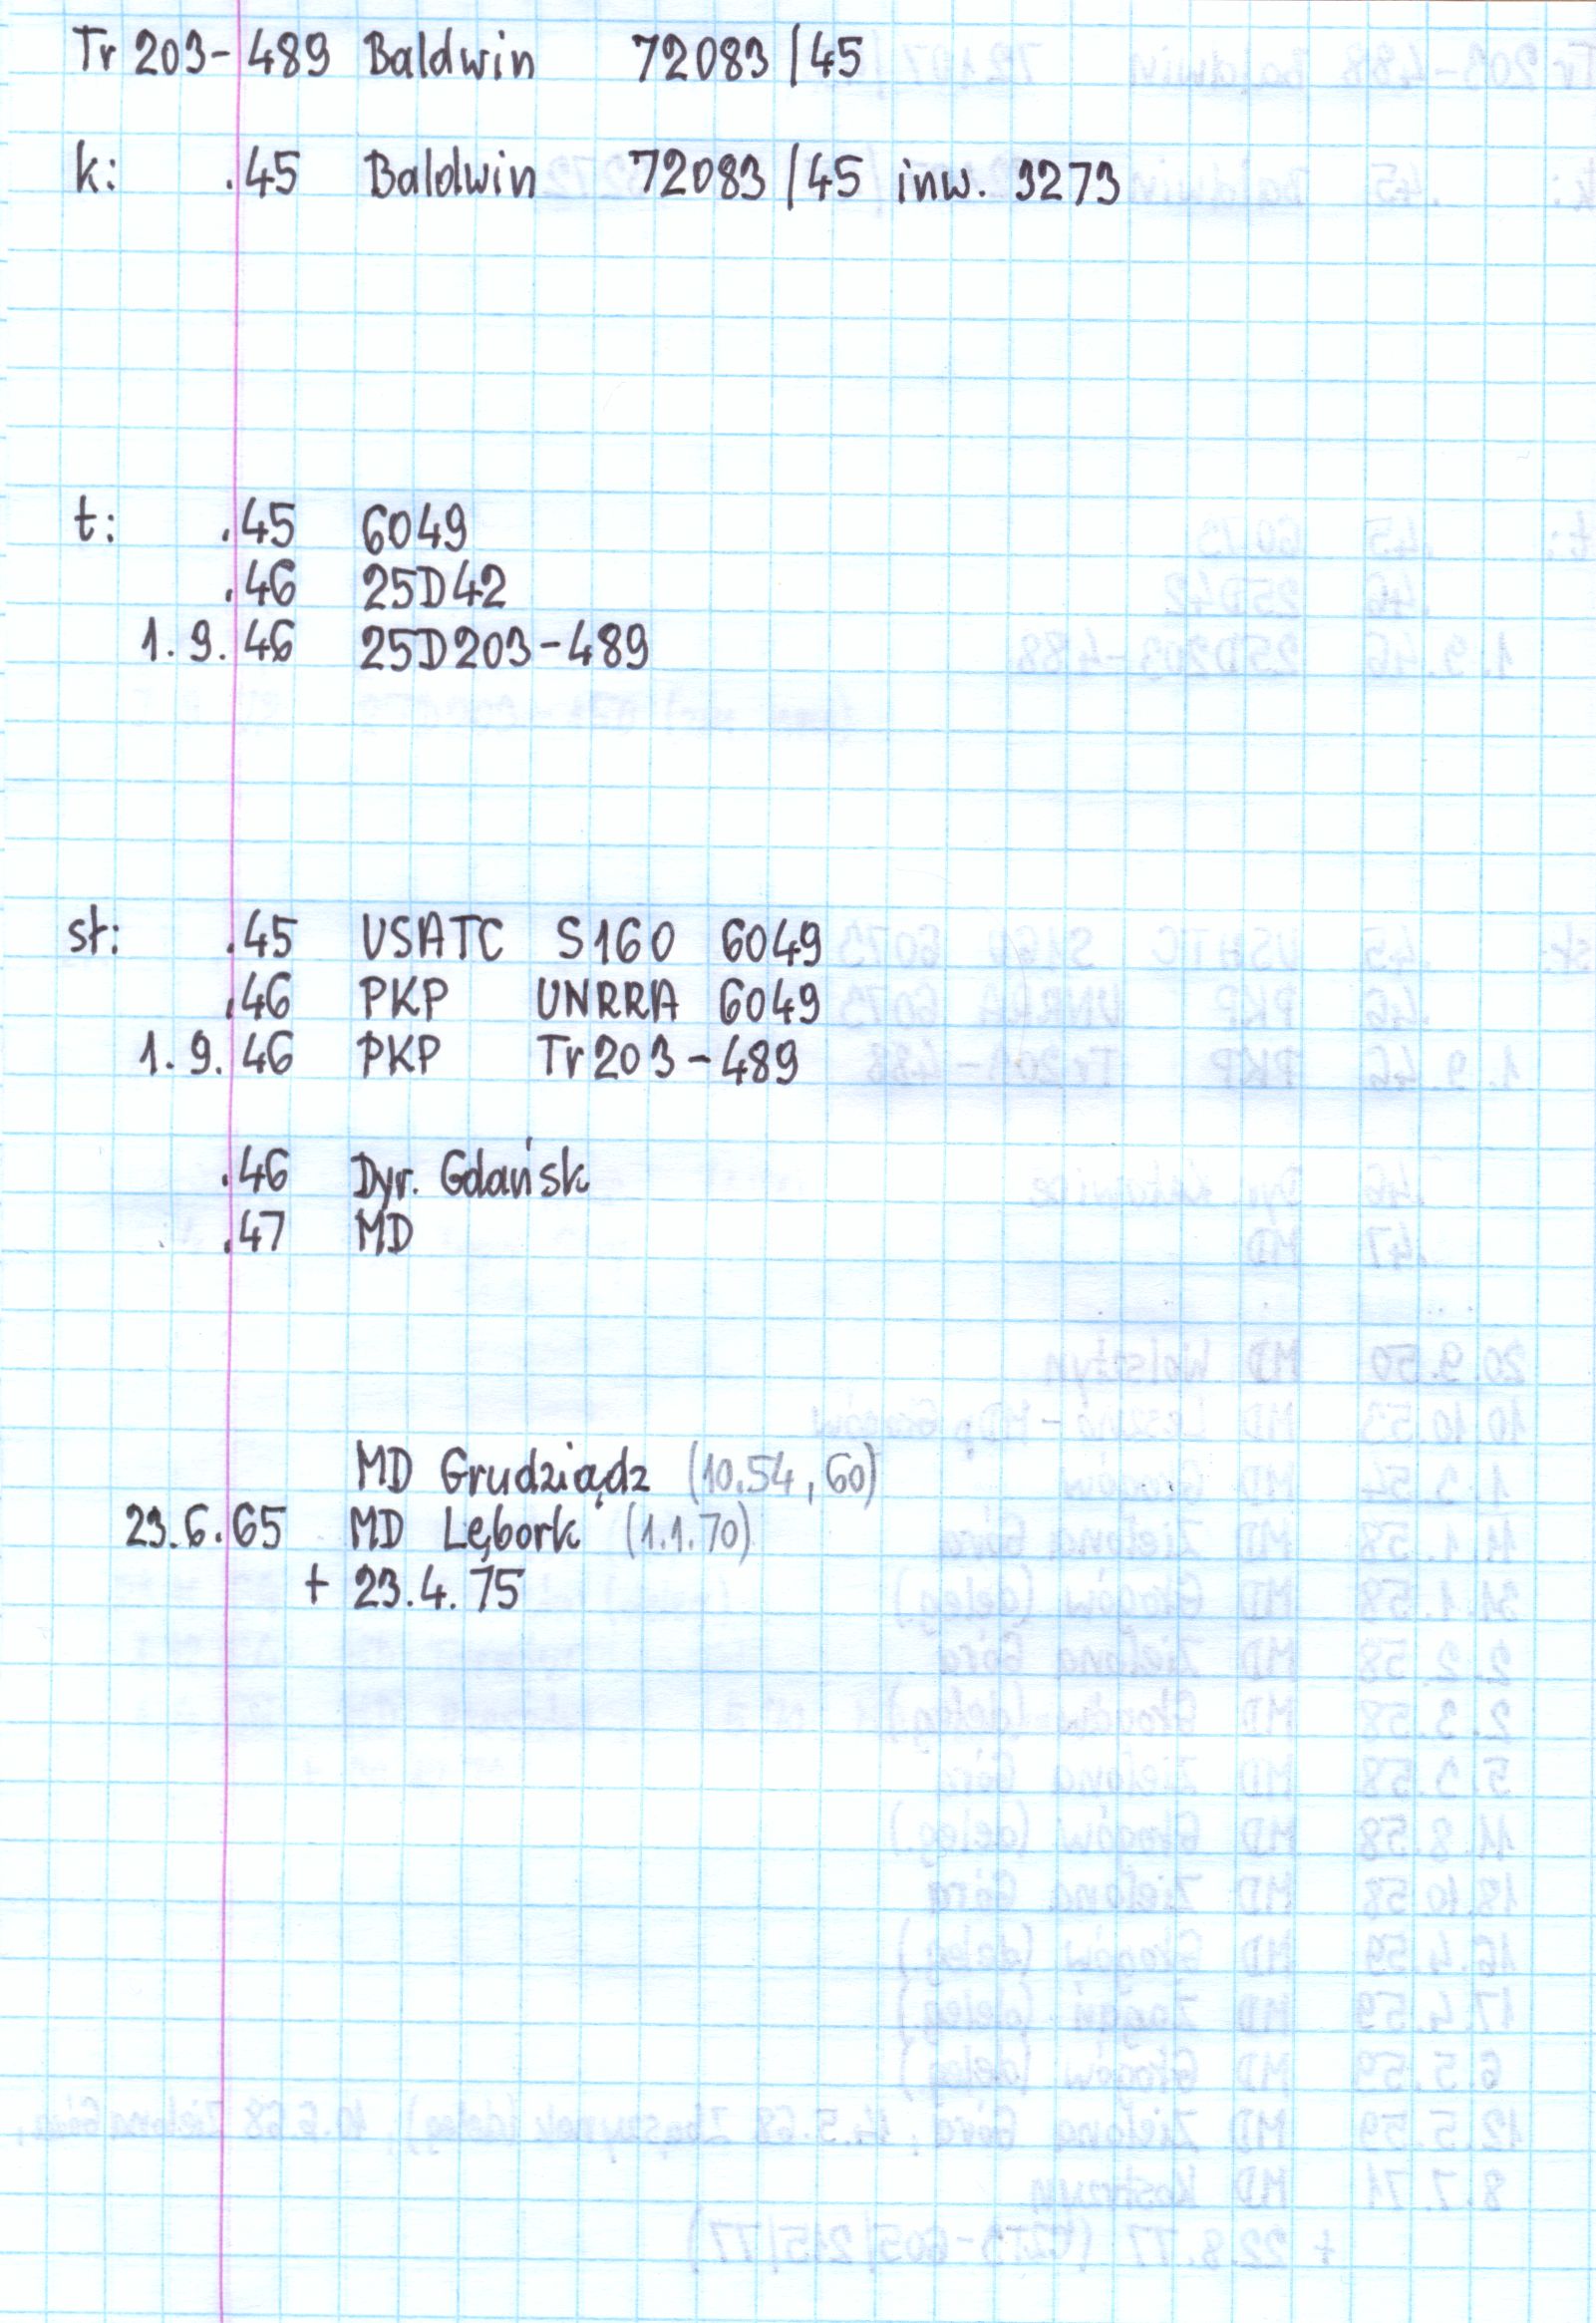 Tr 203-489 Baldwin 72083/45
k: .45 Baldwin 72083/45 inw. 3273
t: .45 6049
.46 25D42
1.9.46 25D203-489
st: .45 USATC S160 6049
.46 PKP UNRRA 6049
1.9.46 PKP Tr203-489
.46 Dyr. Gdańsk
.47 MD
MD Grudziądz (10.54, 60)
23.6.65 MD Lębork (1.1.70)
+ 23.4.75